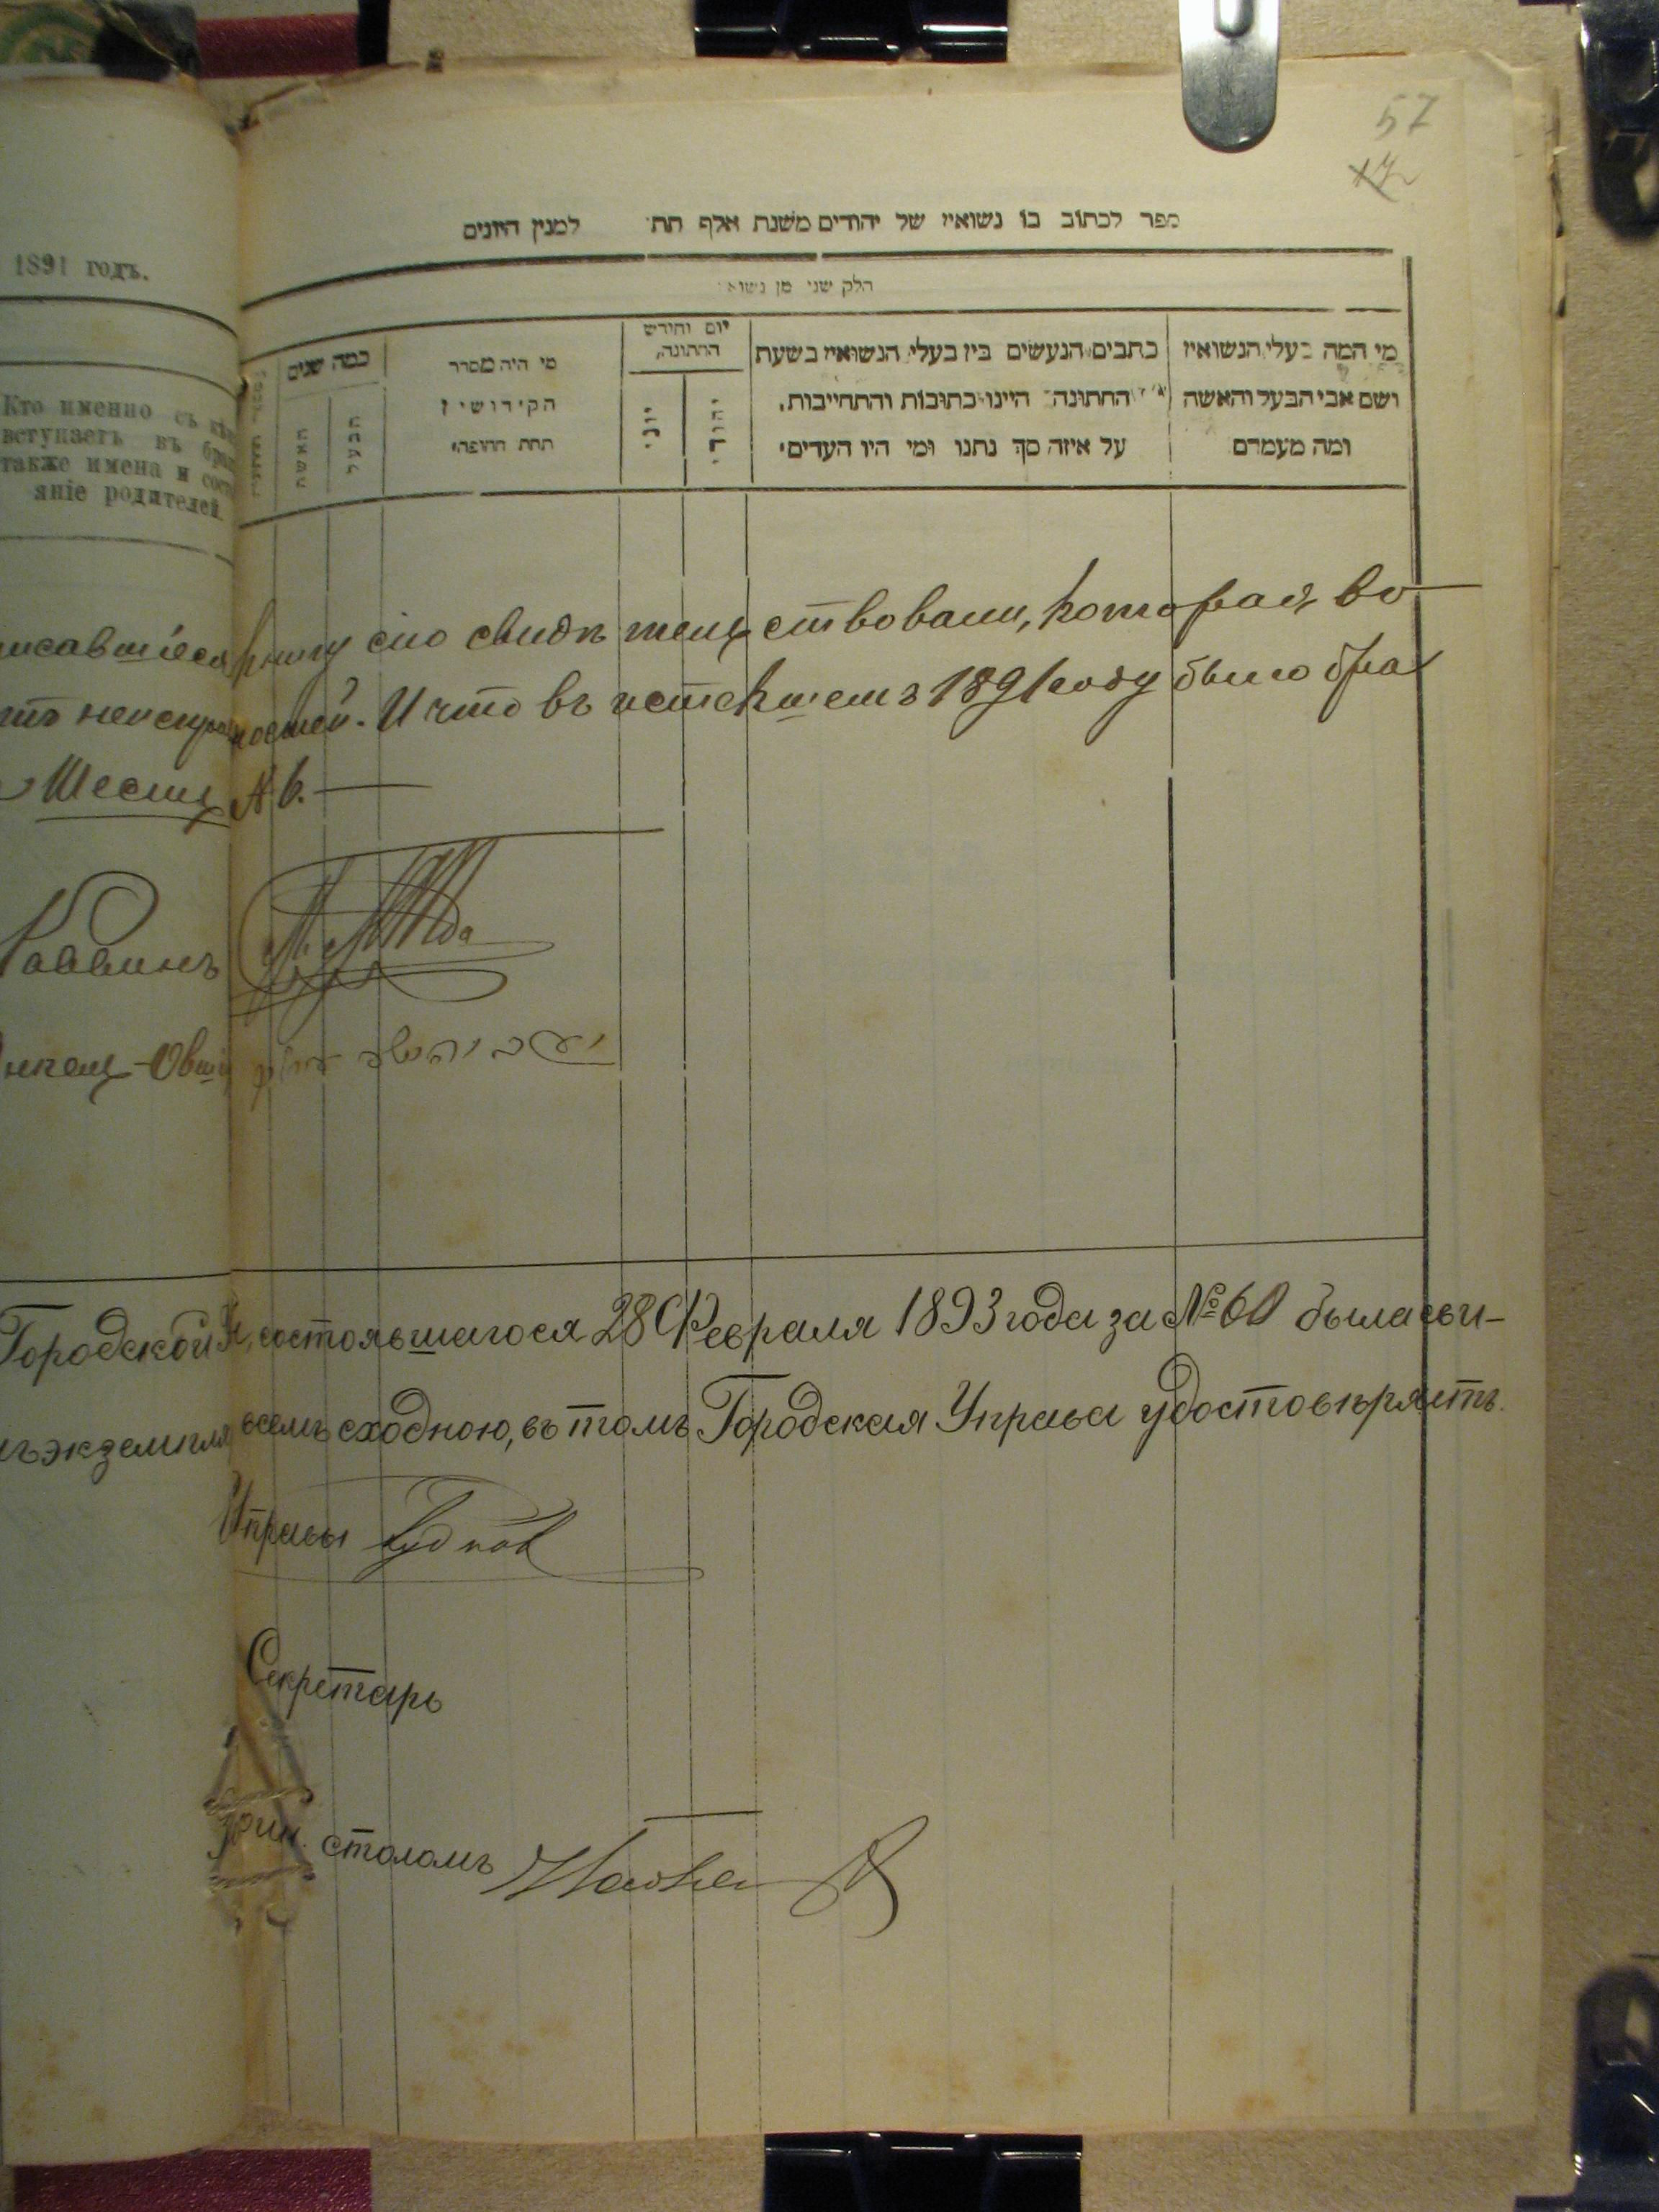 57
1891 годъ.
ספר לכתוב בו נשואין של יהודים משנת אלף תת למנין היונים
חלק שני מן נשואי
Кто именно съ кѣмъ
вступаетъ въ бра
также имена и сост
яніе родителей.
כמה שנים
האשה
הבעל
מי היה מסדר
הקידושין
תחת החופה
יום וחודש
החתונה
יוני
יהודי
כתבים הנעשים בין בעלי הנשואין בשעת
החתונה היינו כתובות והתחייבות,
על איזה סך נתנו ומי היו העדים
מי המה בעלי הנשואין
ושם אבי הבעל והאשה
ומה מעמדם
исавшіеся книгу сію свидѣтельствовали, которая во
неисправностей. И что въ истекшемъ 1891 году было бра
Шесть № 6.
Раввинъ
Овш
Городской состоявшагося 28 Февраля 1893 года за № 60 была сви-
экземпля всемъ сходною, въ томъ Городская Управа удостовѣряетъ.
Управы
Секретарь
столомъ